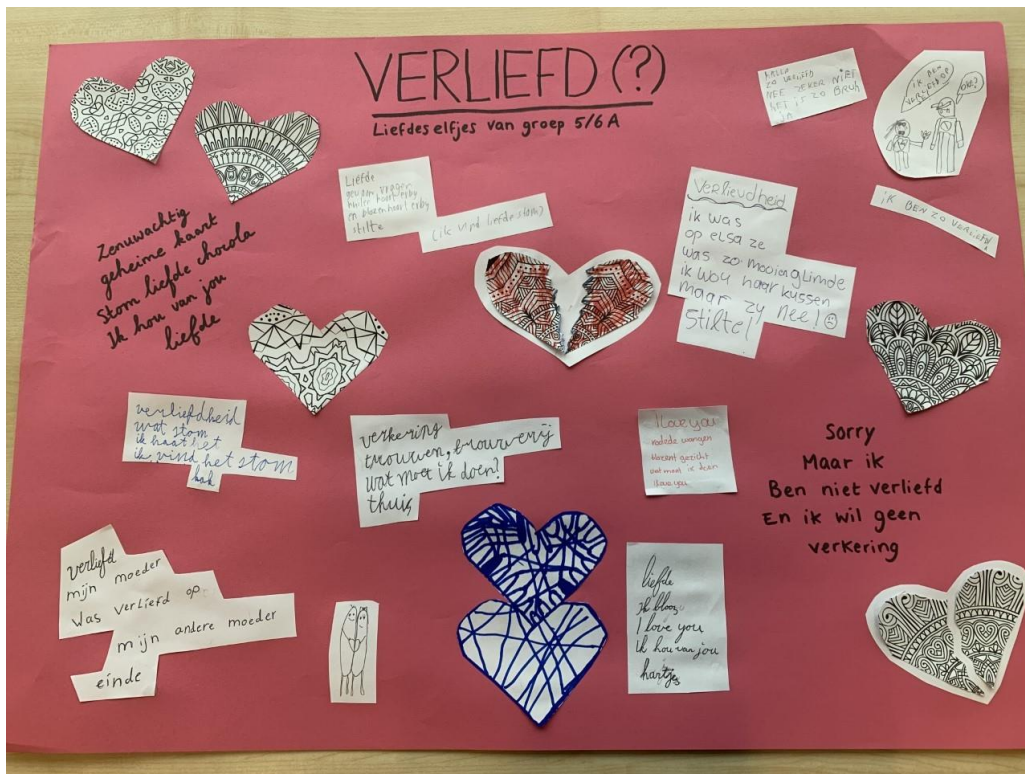 VERLIEFD (?)
Liefdeselfjes van groep 5/6A
ZO VERLIEFD
NEE ZEKER NIET
HET IS ZO BRUH
IK BEN
VERLIEFD OP
IK BEN ZO VERLIEFD
Liefde
stilte
(ik vind liefde stom)
Verlieudheid
ik was
op elsa ze
was zo mooi en glimde
ik wou haar kussen
maar zy nee!
Stilte!
Zenuwachtig
geheime kaart
Stom liefde chocola
Ik hou van jou
liefde
verliefdheid
wat stom
ik haat het
ik vind het stom
verkering
trouwen, brouwerij
wat moet ik doen?
thuis
I love you
rodede wangen
gezicht
wat moet ik doen
i love you
Sorry
Maar ik
Ben niet verliefd
En ik wil geen
verkering
verliefd
mijn moeder
was verliefd op
mijn andere moeder
einde
liefde
ik bloos
I love you
ik hou van jou
hartjes